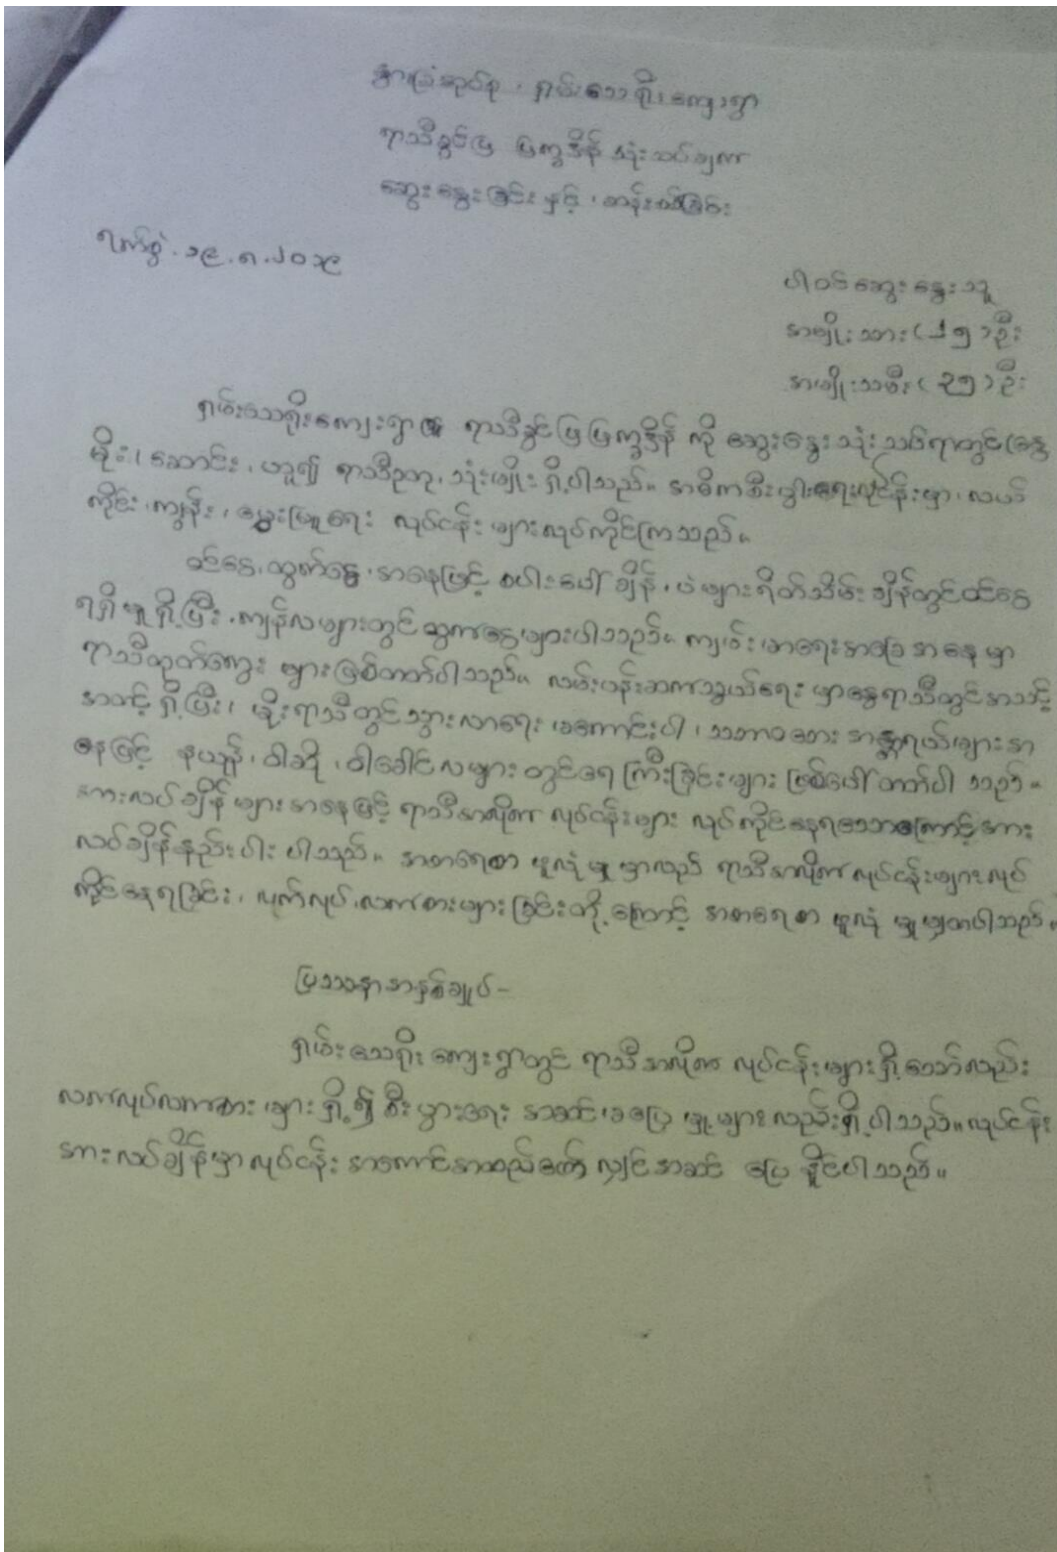 နွားခြံအုပ်စု ၊ ရှမ်းသေရိုးကျေးရွာ
ရာသီခွင်ပြ ပြက္ခဒိန် သုံးသပ်ချက်
ဆွေးနွေးခြင်း နှင့် ၊ တန်းစီခြင်း
ရက်စွဲ ၊ ၁၉ ၊ ၈ ၊ ၂၀၁၉
ပါဝင်ဆွေးနွေးသူ
အမျိုးသား ( ၂၅ ) ဦး
အမျိုးသမီး ( ၃၅ ) ဦး
ရှမ်းသေရိုးကျေးရွာ၏ ရာသီခွင်ပြပြက္ခဒိန် ကို ဆွေးနွေးသုံးသပ်ရာတွင် (နွေ
မိုး ၊ ဆောင်း ၊ ဟူ၍ ရာသီဥတု ၊ သုံးမျိုး ရှိ့ပါသည်။ အဓိကစီးပွါးရေးလုပ်ငန်းမှာ ၊ လယ်
ကိုင်း ၊ ကျွန်း ၊ မွေးမြူရေး လုပ်ငန်း များလုပ်ကိုင်ကြသည်။
ဝင်ငွေ ၊ ထွက်ငွေ ၊ အနေဖြင့် စပါးပေါ်ချိန် ၊ ပဲများရိတ်သိမ်းချိန်တွင်ဝင်ငွေ
ရရှိမှုရှိ့ပြီး ၊ ကျန်လများတွင်ထွက်ငွေများပါသည်။ ကျမ်းမာရေးအခြေအနေမှာ
ရာသီတုတ်ကွေး များဖြစ်တတ်ပါသည်။ လမ်းပန်းဆက်သွယ်ရေး မှာနွေရာသီတွင်အသင့်
အတင့် ရှိ့ပြီး ၊ မိုးရာသီတွင်သွားလာရေး မကောင်းပါ ၊ သဘာဝဘေး အန္တရာယ်များအ
နေဖြင့် နယုန် ၊ ဝါဆို ၊ ဝါခေါင်လများတွင်ရေကြီးခြင်းများ ဖြစ်ပေါ်တတ်ပါ သည်။
အားလပ်ချိန်များအနေဖြင့် ရာသီအလိုက် လုပ်ငန်းများ လုပ်ကိုင်နေရသောကြောင့် အား
လပ်ချိန်နည်းပါး ပါသည်။ အစာရေစာ ဖူလုံမှု မှာလည် ရာသီအလိုက်လုပ်ငန်းများလုပ်
ကိုင်နေရခြင်း ၊ လုက်လုပ် ၊ လက်စားများခြင်းတို့ကြောင့် အစာရေစာ ဖူလုံမှုမျှတပါသည်။
ပြဿနာအနှစ်ချုပ် -
ရှမ်းသေရိုး ကျေးရွာတွင် ရာသီအလိုက် လုပ်ငန်းများရှိ့သော်လည်း
လက်လုပ်လက်စား များရှိ့၍ စီးပွားရေး အဆင်မပြေမှုများလည်းရှိ့ပါသည်။ လုပ်ငန်း
အားလပ်ချိန်မှာလုပ်ငန်း အကောင်အထည်ဖော်လျှင်အဆင် ပြေနိုင်ပါသည်။